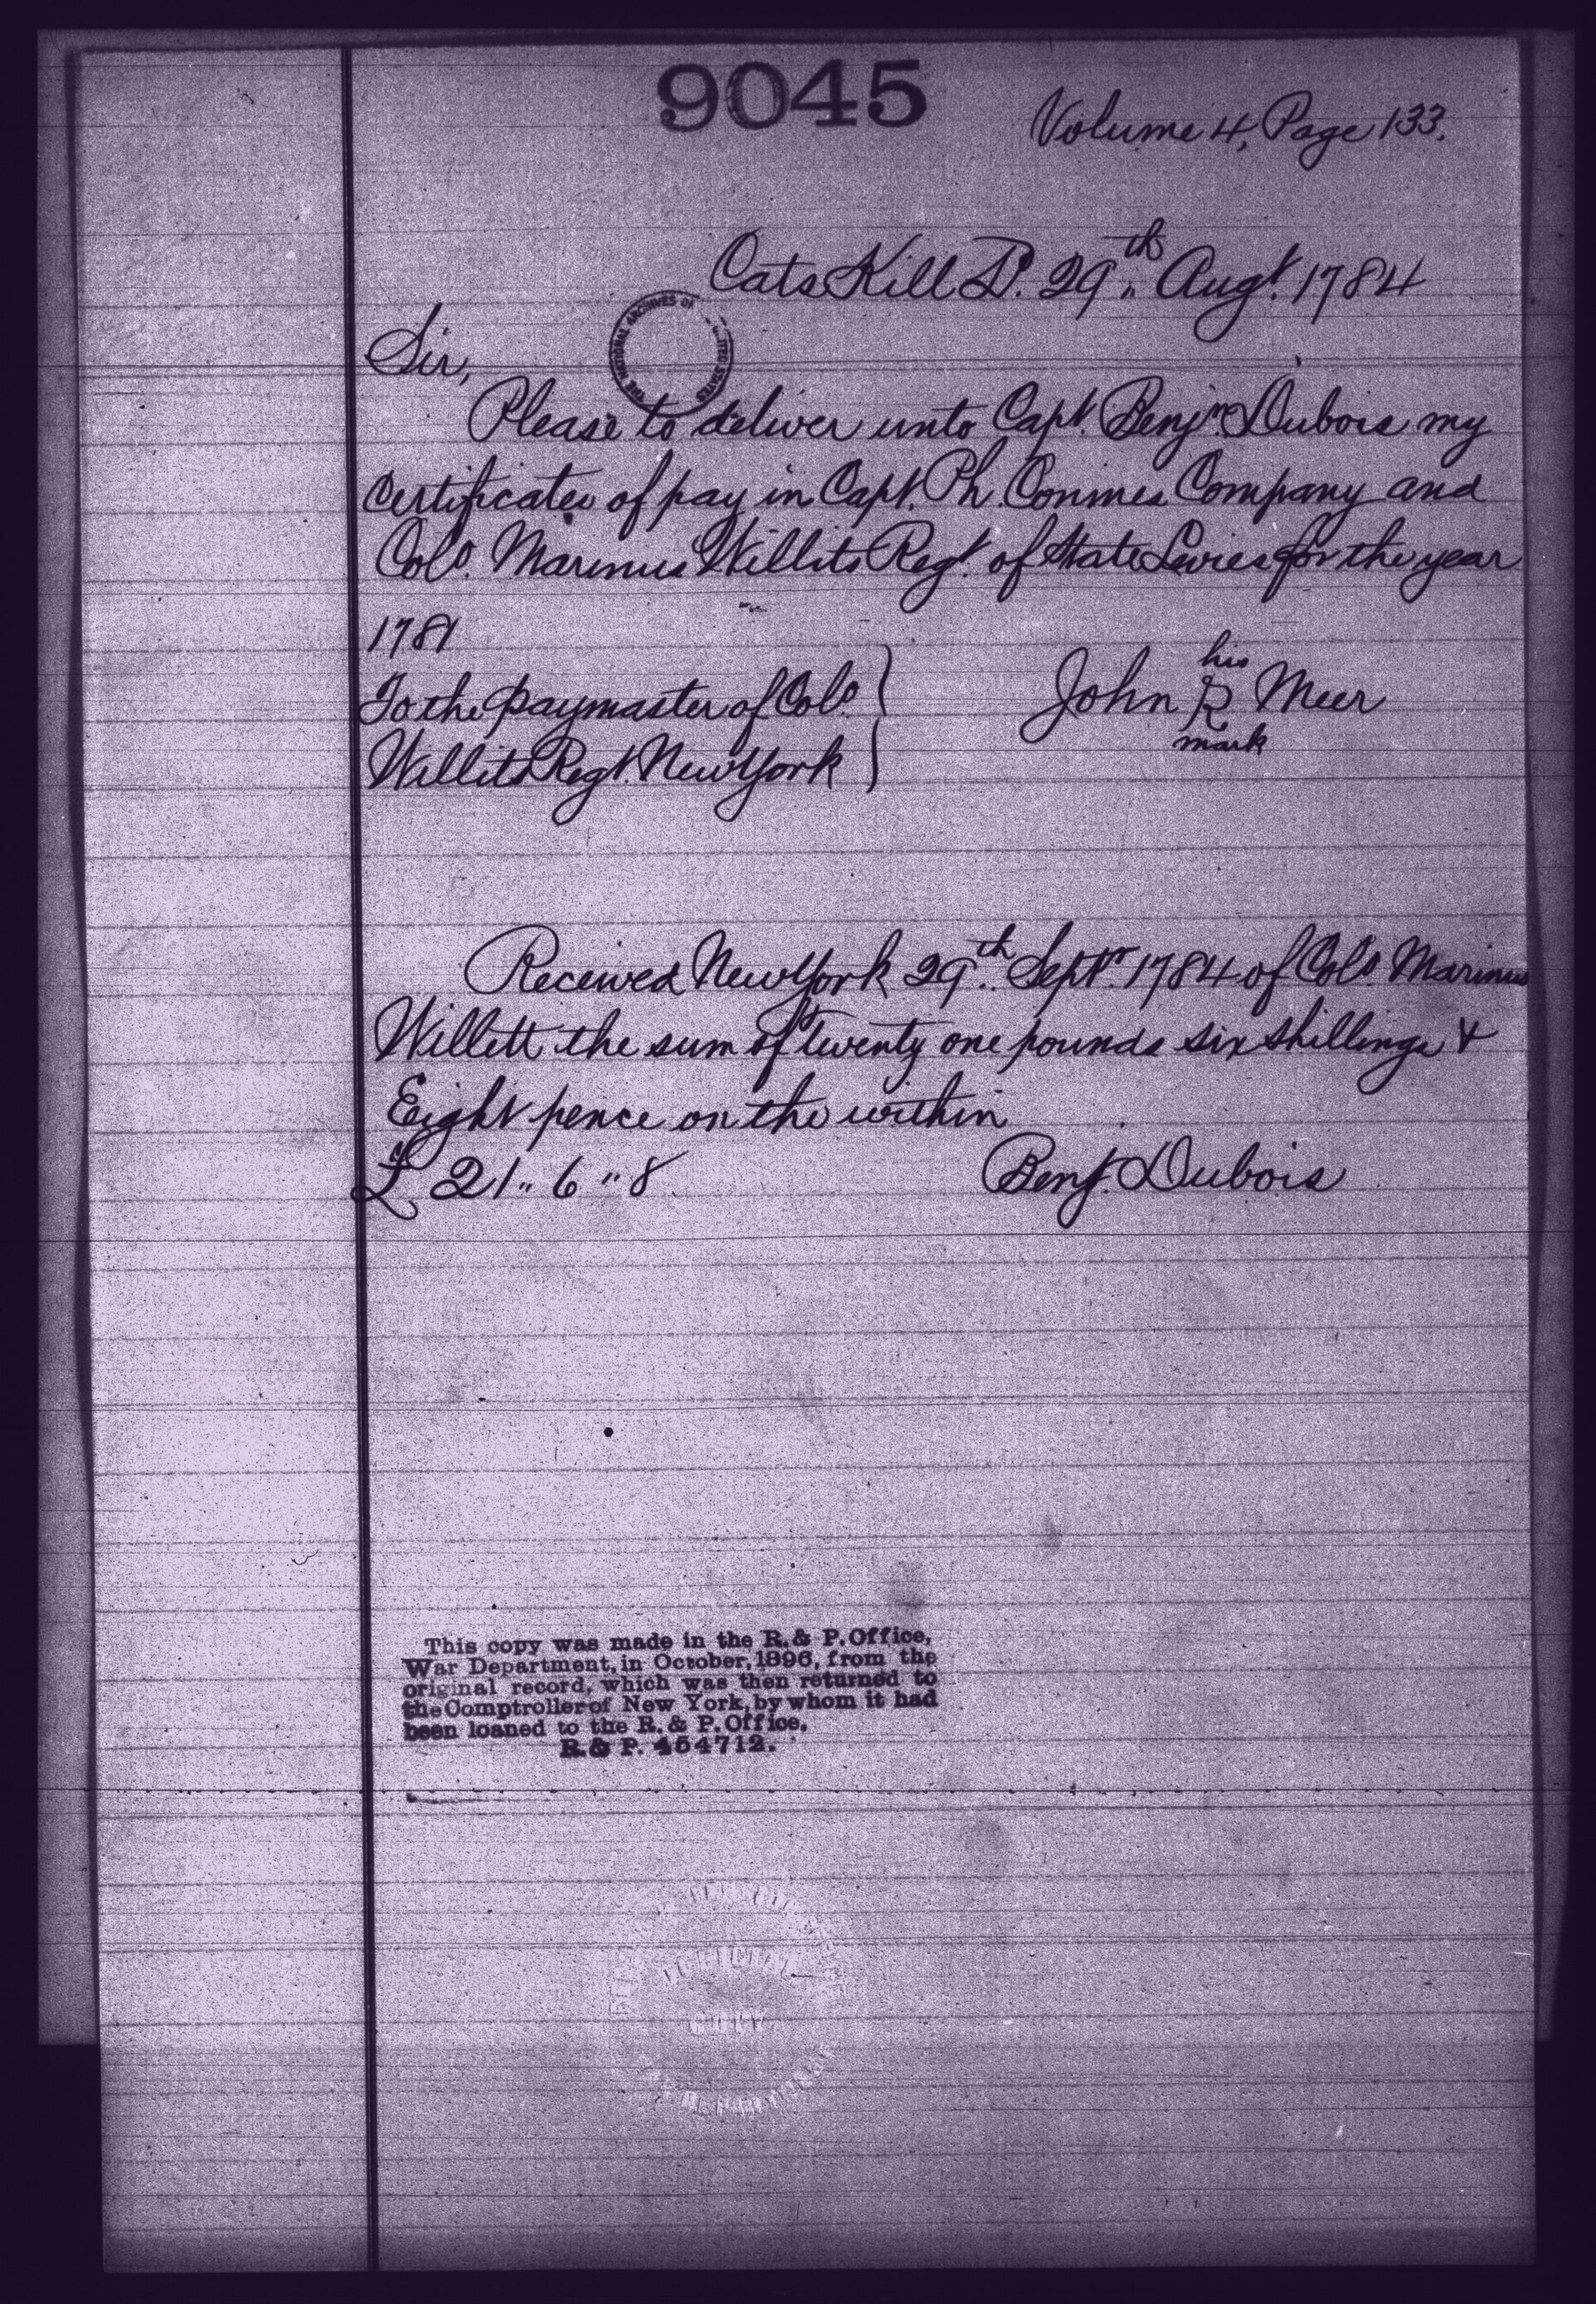 9045
Volume 4, Page 133.
Cats Kill D. 29th Augt. 1784
Sir,
THE NATIONAL ARCHIVES OF THE UNITED STATES
Please to deliver unto Capt. Benjn. Dubois my
Certificates of pay in Capt. Ph. Conines Company and
Colo. Marinus Willits Regt. of State Levies for the year
1781
To the paymaster of Colo.
Willits Regt. New York
his
John R Meer
mark
Received New York 29th. Septr. 1784 of Colo. Marinus
Willett the sum of twenty one pounds six shillings &
Eight pence on the within
£ 21 " 6 " 8
Benj. Dubois
This copy was made in the R. & P. Office,
War Department, in October, 1896, from the
original record, which was then returned to
the Comptroller of New York, by whom it had
been loaned to the R. & P. Office.
R. & P. 454712.